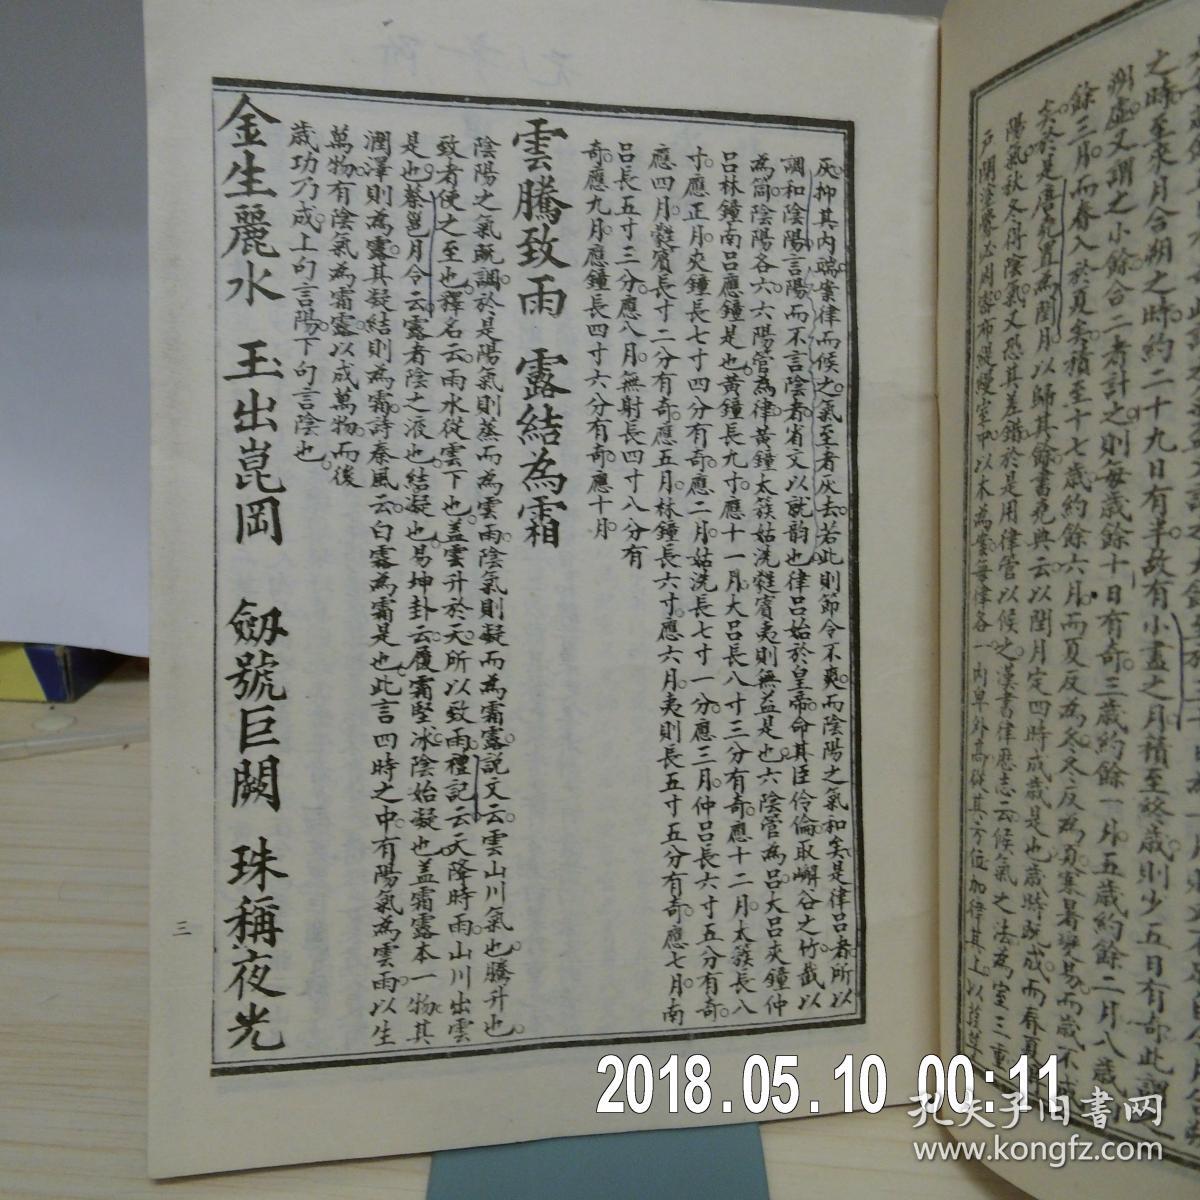 灰抑其內端案律而候之氣至者灰去若此則節令不爽而陰陽之氣和矣是律呂者所以
調和陰陽言陽而不言陰者省文以就韵也律呂始於皇帝命其臣伶倫取嶰谷之竹截以
為筒陰陽各六六陽管為律黃鐘太簇姑洗蕤賓夷則無益是也六陰管為呂大呂夾鐘仲
呂林鐘南呂應鐘是也黃鐘長九寸應十一月大呂長八寸三分有奇應十二月太簇長八
寸應正月夾鐘長七寸四分有奇應二月姑洗長七寸一分應三月仲呂長六寸五分有奇
應四月蕤賓長寸二分有奇應五月林鐘長六寸應六月夷則長五寸五分有奇應七月南
呂長五寸三分應八月無射長四寸八分有
奇應九月應鐘長四寸六分有奇應十月
雲騰致雨 露結為霜
陰陽之氣旣調於是陽氣則蒸而為雲雨陰氣則凝而為霜露說文云雲山川氣也騰升也
致者使之至也釋名云雨水從雲下也蓋雲升於天所以致雨禮記云天降時雨山川出雲
是也蔡邕月令云露者陰之液也結凝也易坤卦云履霜堅冰陰始凝也蓋霜露本一物其
潤澤則為露其凝結則為霜詩秦風云白露為霜是也此言四時之中有陽氣為雲雨以生
萬物有陰氣為霜露以成萬物而後
歲功乃成上句言陽下句言陰也
金生麗水 玉出崑岡 劔號巨闕 珠稱夜光
三
之時至來月合朔之時約二十九日有半故有小盡之月積至終歲則少五日有奇此謂
朔虛又謂之小餘合二者計之則每歲餘十日有奇三歲約餘一月五歲約餘二月八歲
餘三月而春入於夏矣積至十七歲約餘六月而夏反為冬冬反為夏寒暑變易而歲不成
矣於是唐虞置為閏月以歸其餘書堯典云以閏月定四時成歲是也歲時旣成而春夏
陽氣秋冬得陰氣又恐其差錯於是用律管以候之漢書律歷志云候氣之法為室三重
戶閉塗釁必周密布緹縵室中以木為案每律各一內卑外高從其方位加律其上以葭莩
2018.05.10 00:11
孔夫子旧書网
www.kongfz.com